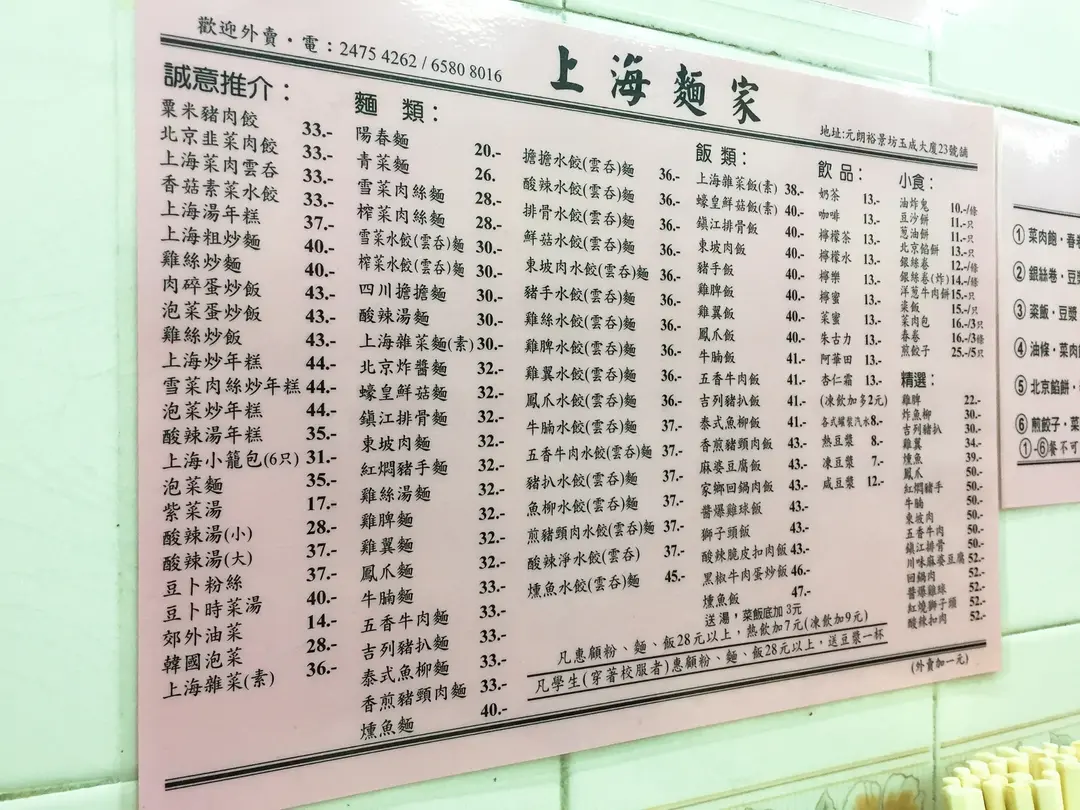 歡迎外賣・電：2475 4262 / 6580 8016
上海麵家
地址:元朗裕景坊玉成大廈23號舖
誠意推介：
粟米豬肉餃 33.-
北京韭菜肉餃 33.-
上海菜肉雲吞 33.-
香菇素菜水餃 33.-
上海湯年糕 37.-
上海粗炒麵 40.-
雞絲炒麵 40.-
肉碎蛋炒飯 43.-
泡菜蛋炒飯 43.-
雞絲炒飯 43.-
上海炒年糕 44.-
雪菜肉絲炒年糕 44.-
泡菜炒年糕 44.-
酸辣湯年糕 35.-
上海小籠包(6只) 31.-
泡菜麵 35.-
紫菜湯 17.-
酸辣湯(小) 28.-
酸辣湯(大) 37.-
豆卜粉絲 37.-
豆卜時菜湯 40.-
郊外油菜 14.-
韓國泡菜 28.-
上海雜菜(素) 36.-
麵 類：
陽春麵 20.-
青菜麵 26.
雪菜肉絲麵 28.-
榨菜肉絲麵 28.-
雪菜水餃(雲吞)麵 30.-
榨菜水餃(雲吞)麵 30.-
四川擔擔麵 30.-
酸辣湯麵 30.-
上海雜菜麵(素) 30.-
北京炸醬麵 32.-
蠔皇鮮菇麵 32.-
鎮江排骨麵 32.-
東坡肉麵 32.-
紅燜豬手麵 32.-
雞絲湯麵 32.-
雞脾麵 32.-
雞翼麵 32.-
鳳爪麵 33.-
牛腩麵 33.-
五香牛肉麵 33.-
吉列豬扒麵 33.-
泰式魚柳麵 33.-
香煎豬頸肉麵 33.-
燻魚麵 40.-
擔擔水餃(雲吞)麵 36.-
酸辣水餃(雲吞)麵 36.-
排骨水餃(雲吞)麵 36.-
鮮菇水餃(雲吞)麵 36.-
東坡肉水餃(雲吞)麵 36.-
豬手水餃(雲吞)麵 36.-
雞絲水餃(雲吞)麵 36.-
雞脾水餃(雲吞)麵 36.-
雞翼水餃(雲吞)麵 36.-
鳳爪水餃(雲吞)麵 36.-
牛腩水餃(雲吞)麵 37.-
五香牛肉水餃(雲吞)麵 37.-
豬扒水餃(雲吞)麵 37.-
魚柳水餃(雲吞)麵 37.-
煎豬頸肉水餃(雲吞)麵 37.-
酸辣淨水餃(雲吞) 37.-
燻魚水餃(雲吞)麵 45.-
飯 類：
上海雜菜飯(素) 38.-
蠔皇鮮菇飯(素) 40.-
鎮江排骨飯 40.-
東坡肉飯 40.-
豬手飯 40.-
雞脾飯 40.-
雞翼飯 40.-
鳳爪飯 40.-
牛腩飯 41.-
五香牛肉飯 41.-
吉列豬扒飯 41.-
泰式魚柳飯 41.-
香煎豬頸肉飯 43.-
麻婆豆腐飯 43.-
家鄉回鍋肉飯 43.-
醬爆雞球飯 43.-
獅子頭飯 43.-
酸辣脆皮扣肉飯 43.-
黑椒牛肉蛋炒飯 46.-
燻魚飯 47.-
送湯，菜飯底加 3元
飲 品：
奶茶 13.-
咖啡 13.-
檸檬茶 13.-
檸檬水 13.-
檸樂 13.-
檸蜜 13.-
菜蜜 13.-
朱古力 13.-
阿華田 13.-
杏仁霜 13.-
(凍飲加多2元)
各式罐裝汽水 8.-
熱豆漿 8.-
凍豆漿 7.-
咸豆漿 12.-
小食：
油炸鬼 10.-/條
豆沙餅 11.-只
葱油餅 11.-只
北京餡餅 13.-只
銀絲卷 12.-/條
銀絲卷(炸) 14.-/條
洋葱牛肉餅 15.-只
粢飯 15.-/只
菜肉包 16.-/3只
春卷 16.-/3條
煎餃子 25.-/5只
精選：
雞脾 22.-
炸魚柳 30.-
吉列豬扒 30.-
雞翼 34.-
燻魚 39.-
鳳爪 50.-
紅燜豬手 50.-
牛腩 50.-
東坡肉 50.-
五香牛肉 50.-
鎮江排骨 50.-
川味麻婆豆腐 52.-
回鍋肉 52.-
醬爆雞球 52.-
紅燒獅子頭 52.-
酸辣扣肉 52.-
凡惠顧粉、麵、飯28元以上，熱飲加7元(凍飲加9元)
凡學生(穿著校服者)惠顧粉、麵、飯28元以上，送豆漿一杯
(外賣加一元)
①菜肉飽・春
②銀絲卷・豆
③粢飯・豆漿
④油條・菜肉
⑤北京餡餅・
⑥煎餃子・菜
①-⑥餐不可